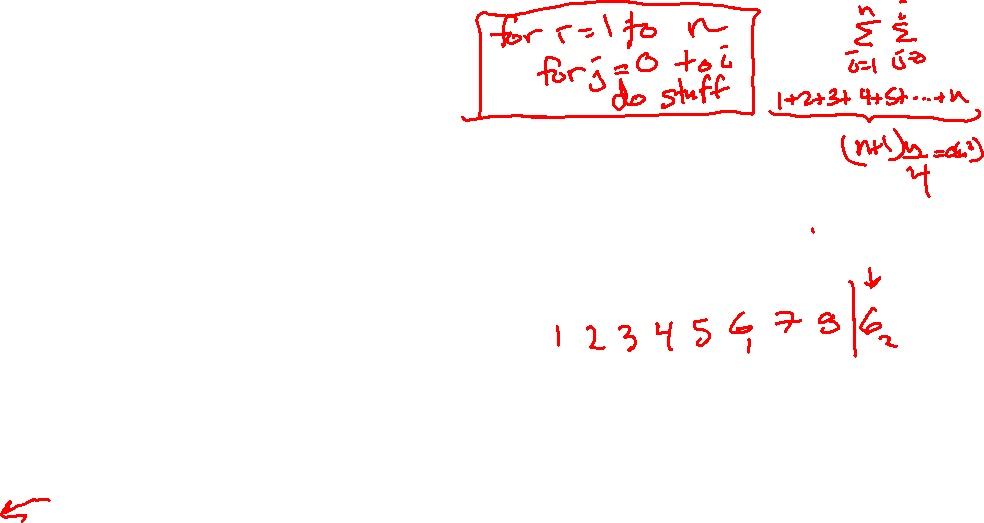 for i=1 to n
for j=0 to i
do stuff
n i
Σ Σ
i=1 j=0
1+2+3+4+5+...+n
(n+1)n/4 =O(n²)
1 2 3 4 5 6₁ 7 8 | 6₂